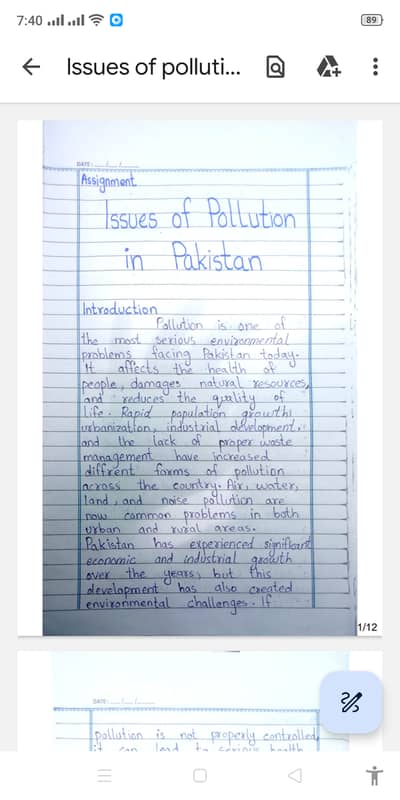 7:40
89
Issues of polluti...
DATE:
Assignment
Issues of Pollution
in Pakistan
Introduction
Pollution is one of
the most serious environmental
problems facing Pakistan today.
It affects the health of
people, damages natural resources,
and reduces the quality of
life. Rapid population growth,
urbanization, industrial development,
and the lack of proper waste
management have increased
diffrent forms of pollution
across the country. Air, water,
land, and noise pollution are
now common problems in both
urban and rural areas.
Pakistan has experienced significant
economic and industrial growth
over the years, but this
development has also created
environmental challenges. If
1/12
DATE:
pollution is not properly controlled,
it can lead to serious health